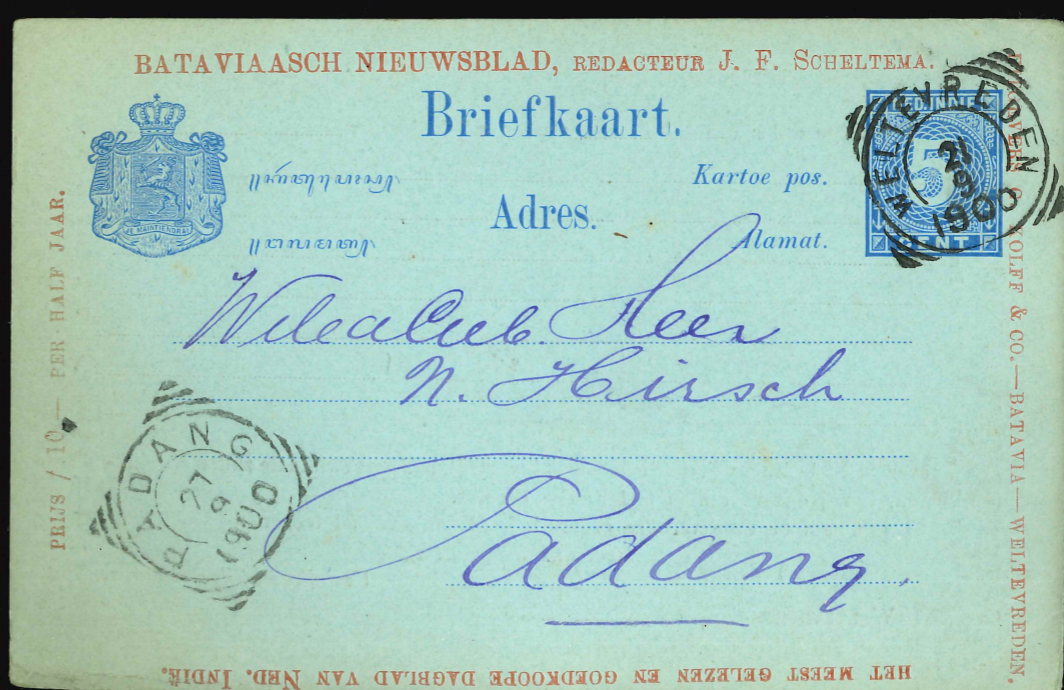 BATAVIAASCH NIEUWSBLAD, REDACTEUR J. F. SCHELTEMA.
Briefkaart.
Kartoe pos.
Adres.
Alamat.
JE MAINTIENDRAI
NED.INDIE
5
CENT
WELTEVREDEN
21
9
1900
Heer
N. Hirsch
Padang.
PADANG
27
9
1900
PRIJS f 10.— PER HALF JAAR.
KOLFF & CO.—BATAVIA—WELTEVREDEN.
HET MEEST GELEZEN EN GOEDKOOPE DAGBLAD VAN NED. INDIË.